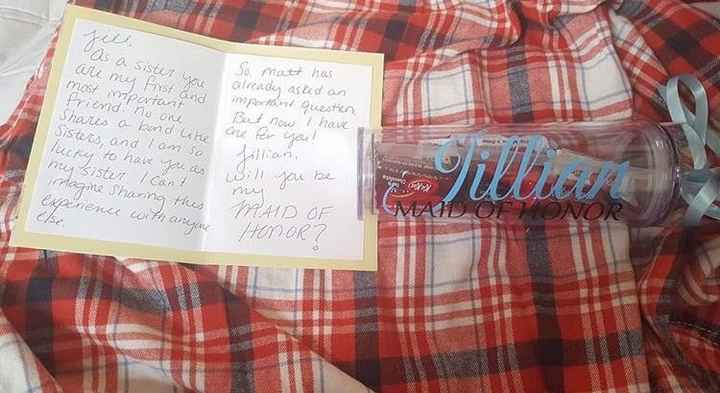 Jill,
"As a sister you
are my first and
most important
friend. No one
shares a bond like
sisters, and I am so
lucky to have you as
my sister. I can't
imagine sharing this
experience with anyone
else.
So Matt has
already asked an
important question
But now I have
one for you!
Jillian,
will you be
my
MAID OF
HONOR?
Jillian
MAID OF HONOR